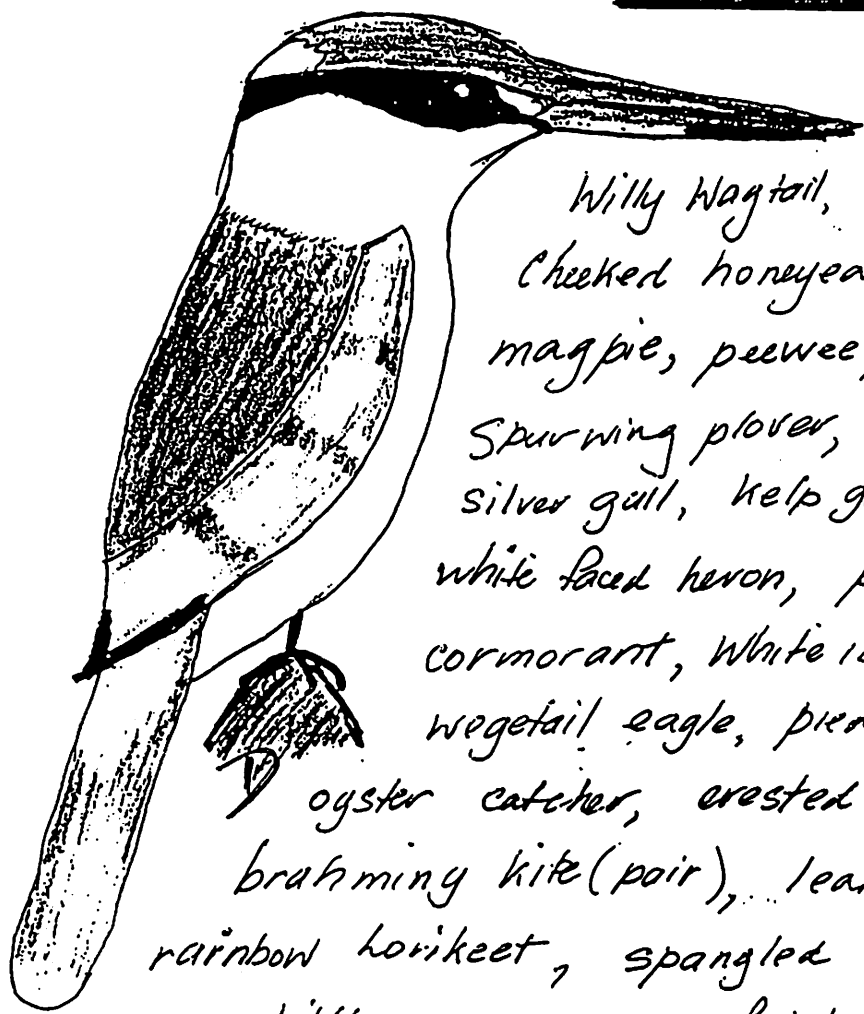 Willy Wagtail,
Cheeked honeyea
magpie, peewee,
Spurwing plover,
silver gull, kelp g
white faced heron, p
cormorant, White i
wegetail eagle, pied
oyster catcher, crested
brahming kite (pair), lea
rainbow Lorikeet, spangled